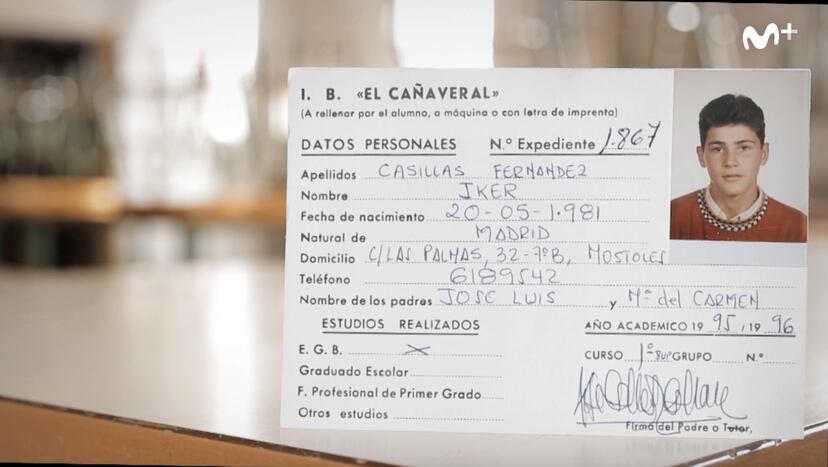 M+
I. B. «EL CAÑAVERAL»
(A rellenar por el alumno, a máquina o con letra de imprenta)
DATOS PERSONALES N.º Expediente 1.867
Apellidos CASILLAS FERNANDEZ
Nombre IKER
Fecha de nacimiento 20-05-1.981
Natural de MADRID
Domicilio C/LAS PALMAS, 32-7ºB, MOSTOLES
Teléfono 6189542
Nombre de los padres JOSE LUIS y Mª del CARMEN
ESTUDIOS REALIZADOS
AÑO ACADEMICO 19 95 / 19 96
E. G. B. X
CURSO 1º BUP GRUPO N.º
Graduado Escolar
F. Profesional de Primer Grado
Otros estudios
Firma del Padre o Tutor,